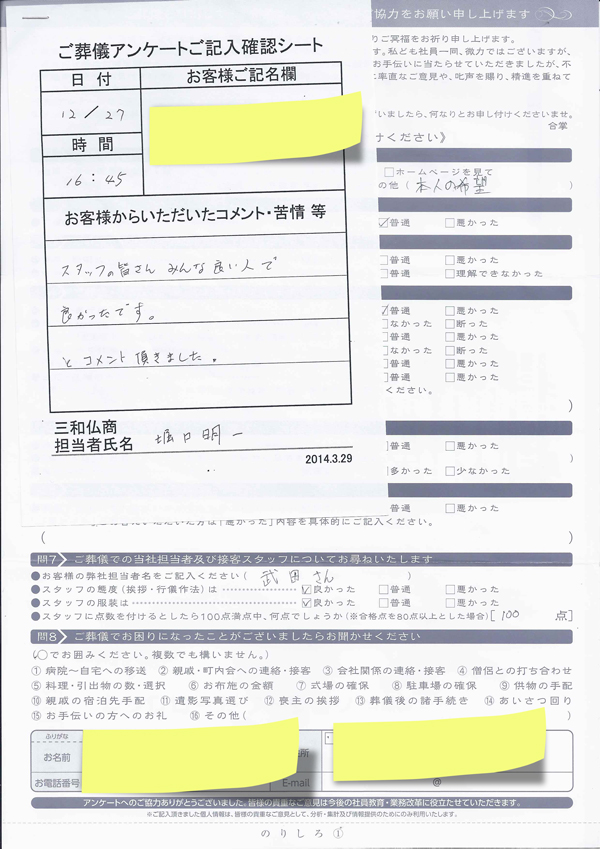 協力をお願い申し上げます
ご葬儀アンケートご記入確認シート
日付
お客様ご記名欄
12/27
時間
16:45
お客様からいただいたコメント・苦情 等
スタッフの皆さん みんな良い人で
良かったです。
とコメント頂きました。
三和仏商
担当者氏名 堀口明一
2014.3.29
ご冥福をお祈り申し上げます。
す。私ども社員一同、微力ではございますが、
お手伝いに当たらせていただきましたが、不
率直なご意見や、叱声を賜り、精進を重ねて
いましたら、何なりとお申し付けくださいませ。
合掌
けください》
□ホームページを見て
の他(本人の希望
☑普通 □悪かった
普通 □悪かった
普通 □理解できなかった
☑普通 □悪かった
なかった □断った
普通 □悪かった
なかった □断った
普通 □悪かった
普通 □悪かった
ください。
)
普通 □悪かった
)
多かった □少なかった
普通 □悪かった
いただいた方は「悪かった」内容を具体的にご記入ください。
( )
問7 ご葬儀での当社担当者及び接客スタッフについてお尋ねいたします
●お客様の弊社担当者名をご記入ください( 武田さん )
●スタッフの態度(挨拶・行儀作法)は ☑良かった □普通 □悪かった
●スタッフの服装は ☑良かった □普通 □悪かった
●スタッフに点数を付けるとしたら100点満点中、何点でしょうか(※合格点を80点以上とした場合)[ 100 点]
問8 ご葬儀でお困りになったことがございましたらお聞かせください
(○でお囲みください。複数でも構いません。)
①病院〜自宅への移送 ②親戚・町内会への連絡・接客 ③会社関係の連絡・接客 ④僧侶との打ち合わせ
⑤料理・引出物の数・選択 ⑥お布施の金額 ⑦式場の確保 ⑧駐車場の確保 ⑨供物の手配
⑩親戚の宿泊先手配 ⑪遺影写真選び ⑫喪主の挨拶 ⑬葬儀後の諸手続き ⑭あいさつ回り
⑮お手伝いの方へのお礼 ⑯その他( )
ふりがな
お名前
所
お電話番号
E-mail @
アンケートへのご協力ありがとうございました。皆様の貴重なご意見は今後の社員教育・業務改革に役立たせていただきます。
※ご記入頂きました個人情報は、皆様の貴重なご意見として、分析・集計及び情報提供のためにのみ利用いたします。
のりしろ①